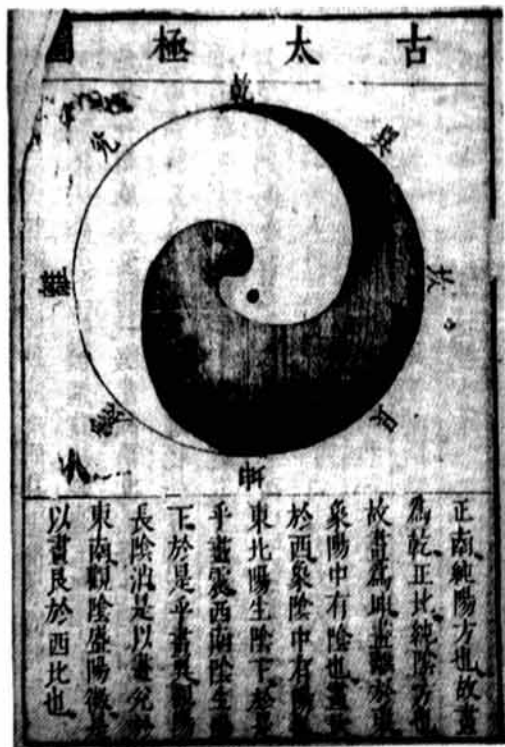 古太極圖
乾
兌
巽
離
坎
震
艮
坤
正南純陽方也故畫
為乾正北純陰方也
故畫為坤畫離於東
象陽中有陰也畫坎
於西象陰中有陽
東北陽生陰下於是
乎畫震西南陰生陽
下於是乎畫巽觀陽
長陰消是以畫兌於
東南觀陰盛陽微是
以畫艮於西北也